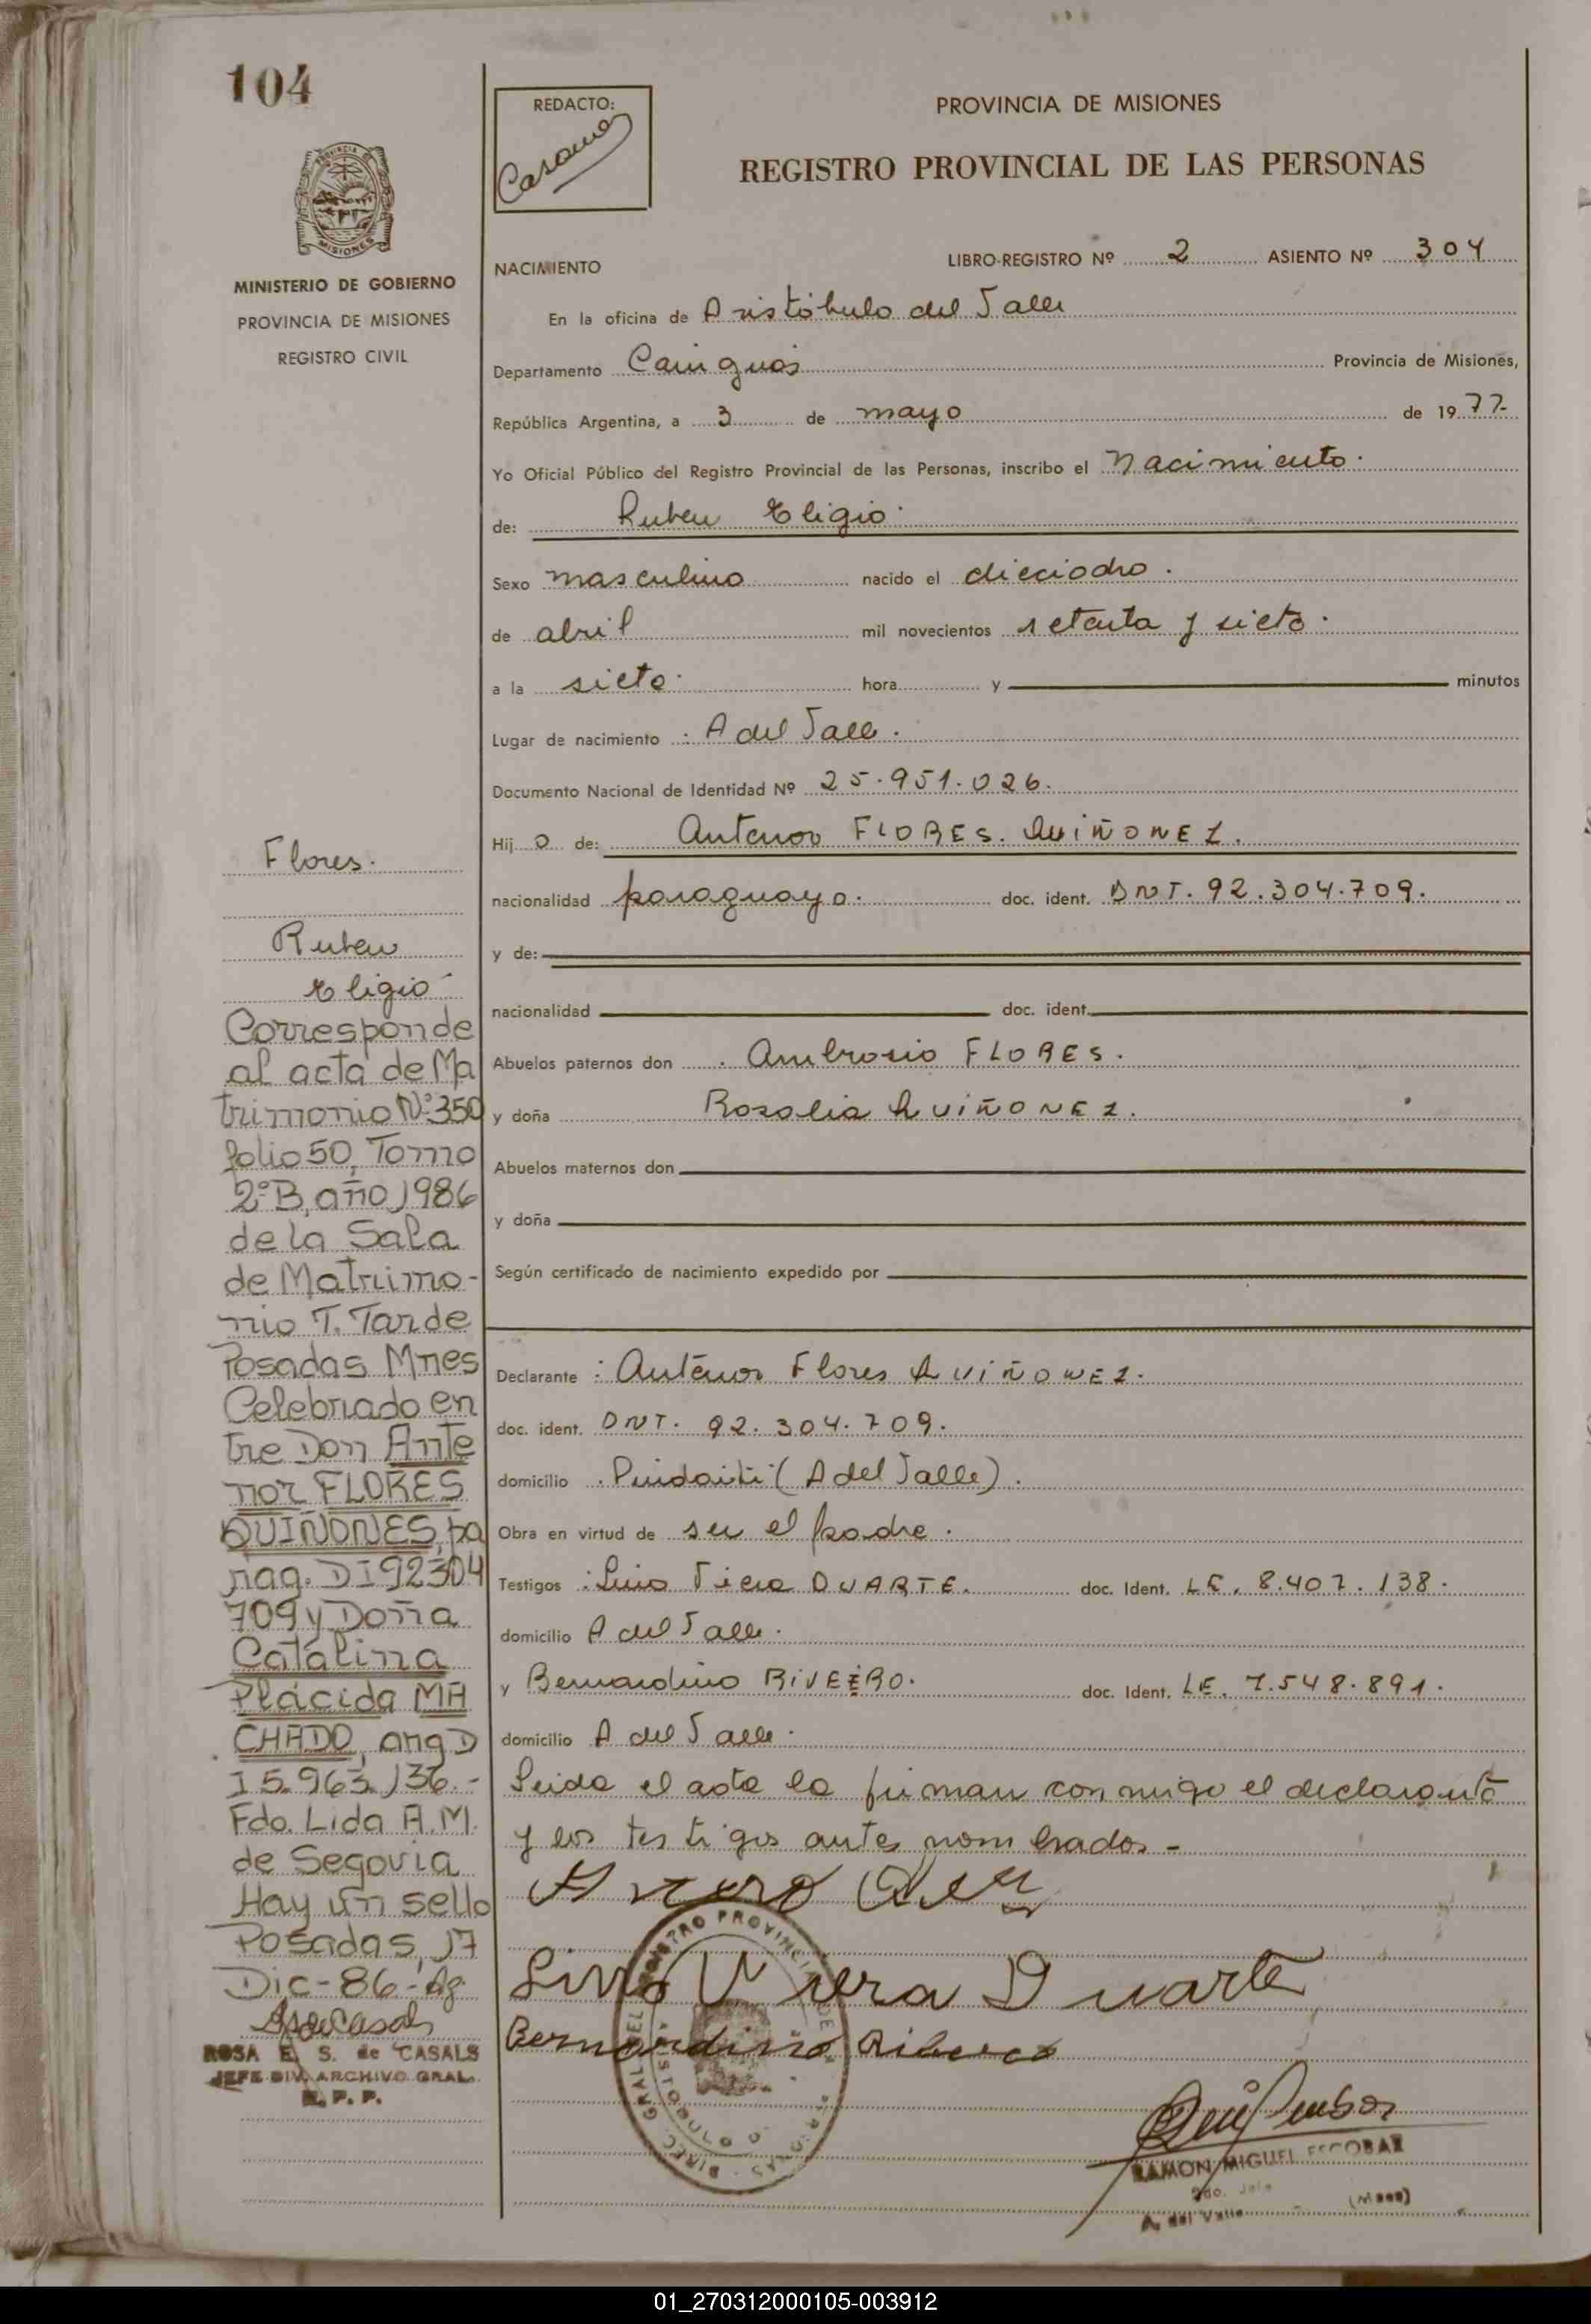 104
REDACTO:
PROVINCIA DE MISIONES
REGISTRO PROVINCIAL DE LAS PERSONAS
PROVINCIA DE
MISIONES
MINISTERIO DE GOBIERNO
PROVINCIA DE MISIONES
REGISTRO CIVIL
NACIMIENTO LIBRO-REGISTRO Nº 2 ASIENTO Nº 304
En la oficina de Aristóbulo del Valle
Departamento Cainguás Provincia de Misiones,
República Argentina, a 3 de mayo de 1977-
Yo Oficial Público del Registro Provincial de las Personas, inscribo el Nacimiento.
de: Ruben Eligio.
Sexo masculino nacido el dieciocho.
de abril mil novecientos setenta y siete.
a la siete. hora y minutos
Lugar de nacimiento : A del Valle.
Documento Nacional de Identidad Nº 25.951.026.
Hij o de: Antenor FLORES. QUIÑONEZ.
nacionalidad paraguaya. doc. ident. DNI. 92.304.709.
y de:
nacionalidad doc. ident.
Abuelos paternos don . Ambrosio FLORES.
y doña Rosalia QUIÑONEZ.
Abuelos maternos don
y doña
Según certificado de nacimiento expedido por
Declarante : Antenor Flores QUIÑONEZ.
doc. ident. DNI. 92.304.709.
domicilio . Pindaiti (A del Valle).
Obra en virtud de ser el padre.
Testigos : Lino Viera DUARTE. doc. Ident. LE. 8.407.138.
domicilio A del Valle.
y Bernardino RIVEIRO. doc. Ident. LE. 7.548.891.
domicilio A del Valle.
Leida el acta la firman conmigo el declarante
y los testigos antes nombrados-
Lino Viera Duarte
Bernardino
RAMON MIGUEL ESCOBAR
A. del Valle (Mnes)
Flores.
Ruben
Eligio-
Corresponde
al acta de Ma
trimonio Nº 350
folio 50, Tomo
2º B, año 1986
de la Sala
de Matrimo-
nio T. Tarde
Posadas Mnes
Celebrado en
tre Don Ante
nor FLORES
QUIÑONES, pa
rag. DI 92304
709 y Doña
Catalina
Plácida MA
CHADO, arg D
I 5.963.136.-
Fdo. Lida A.M.
de Segovia
Hay un sello
Posadas, 17
Dic-86-Ag
ROSA E. S. de CASALS
JEFE DIV. ARCHIVO GRAL.
R. P. P.
01_270312000105-003912